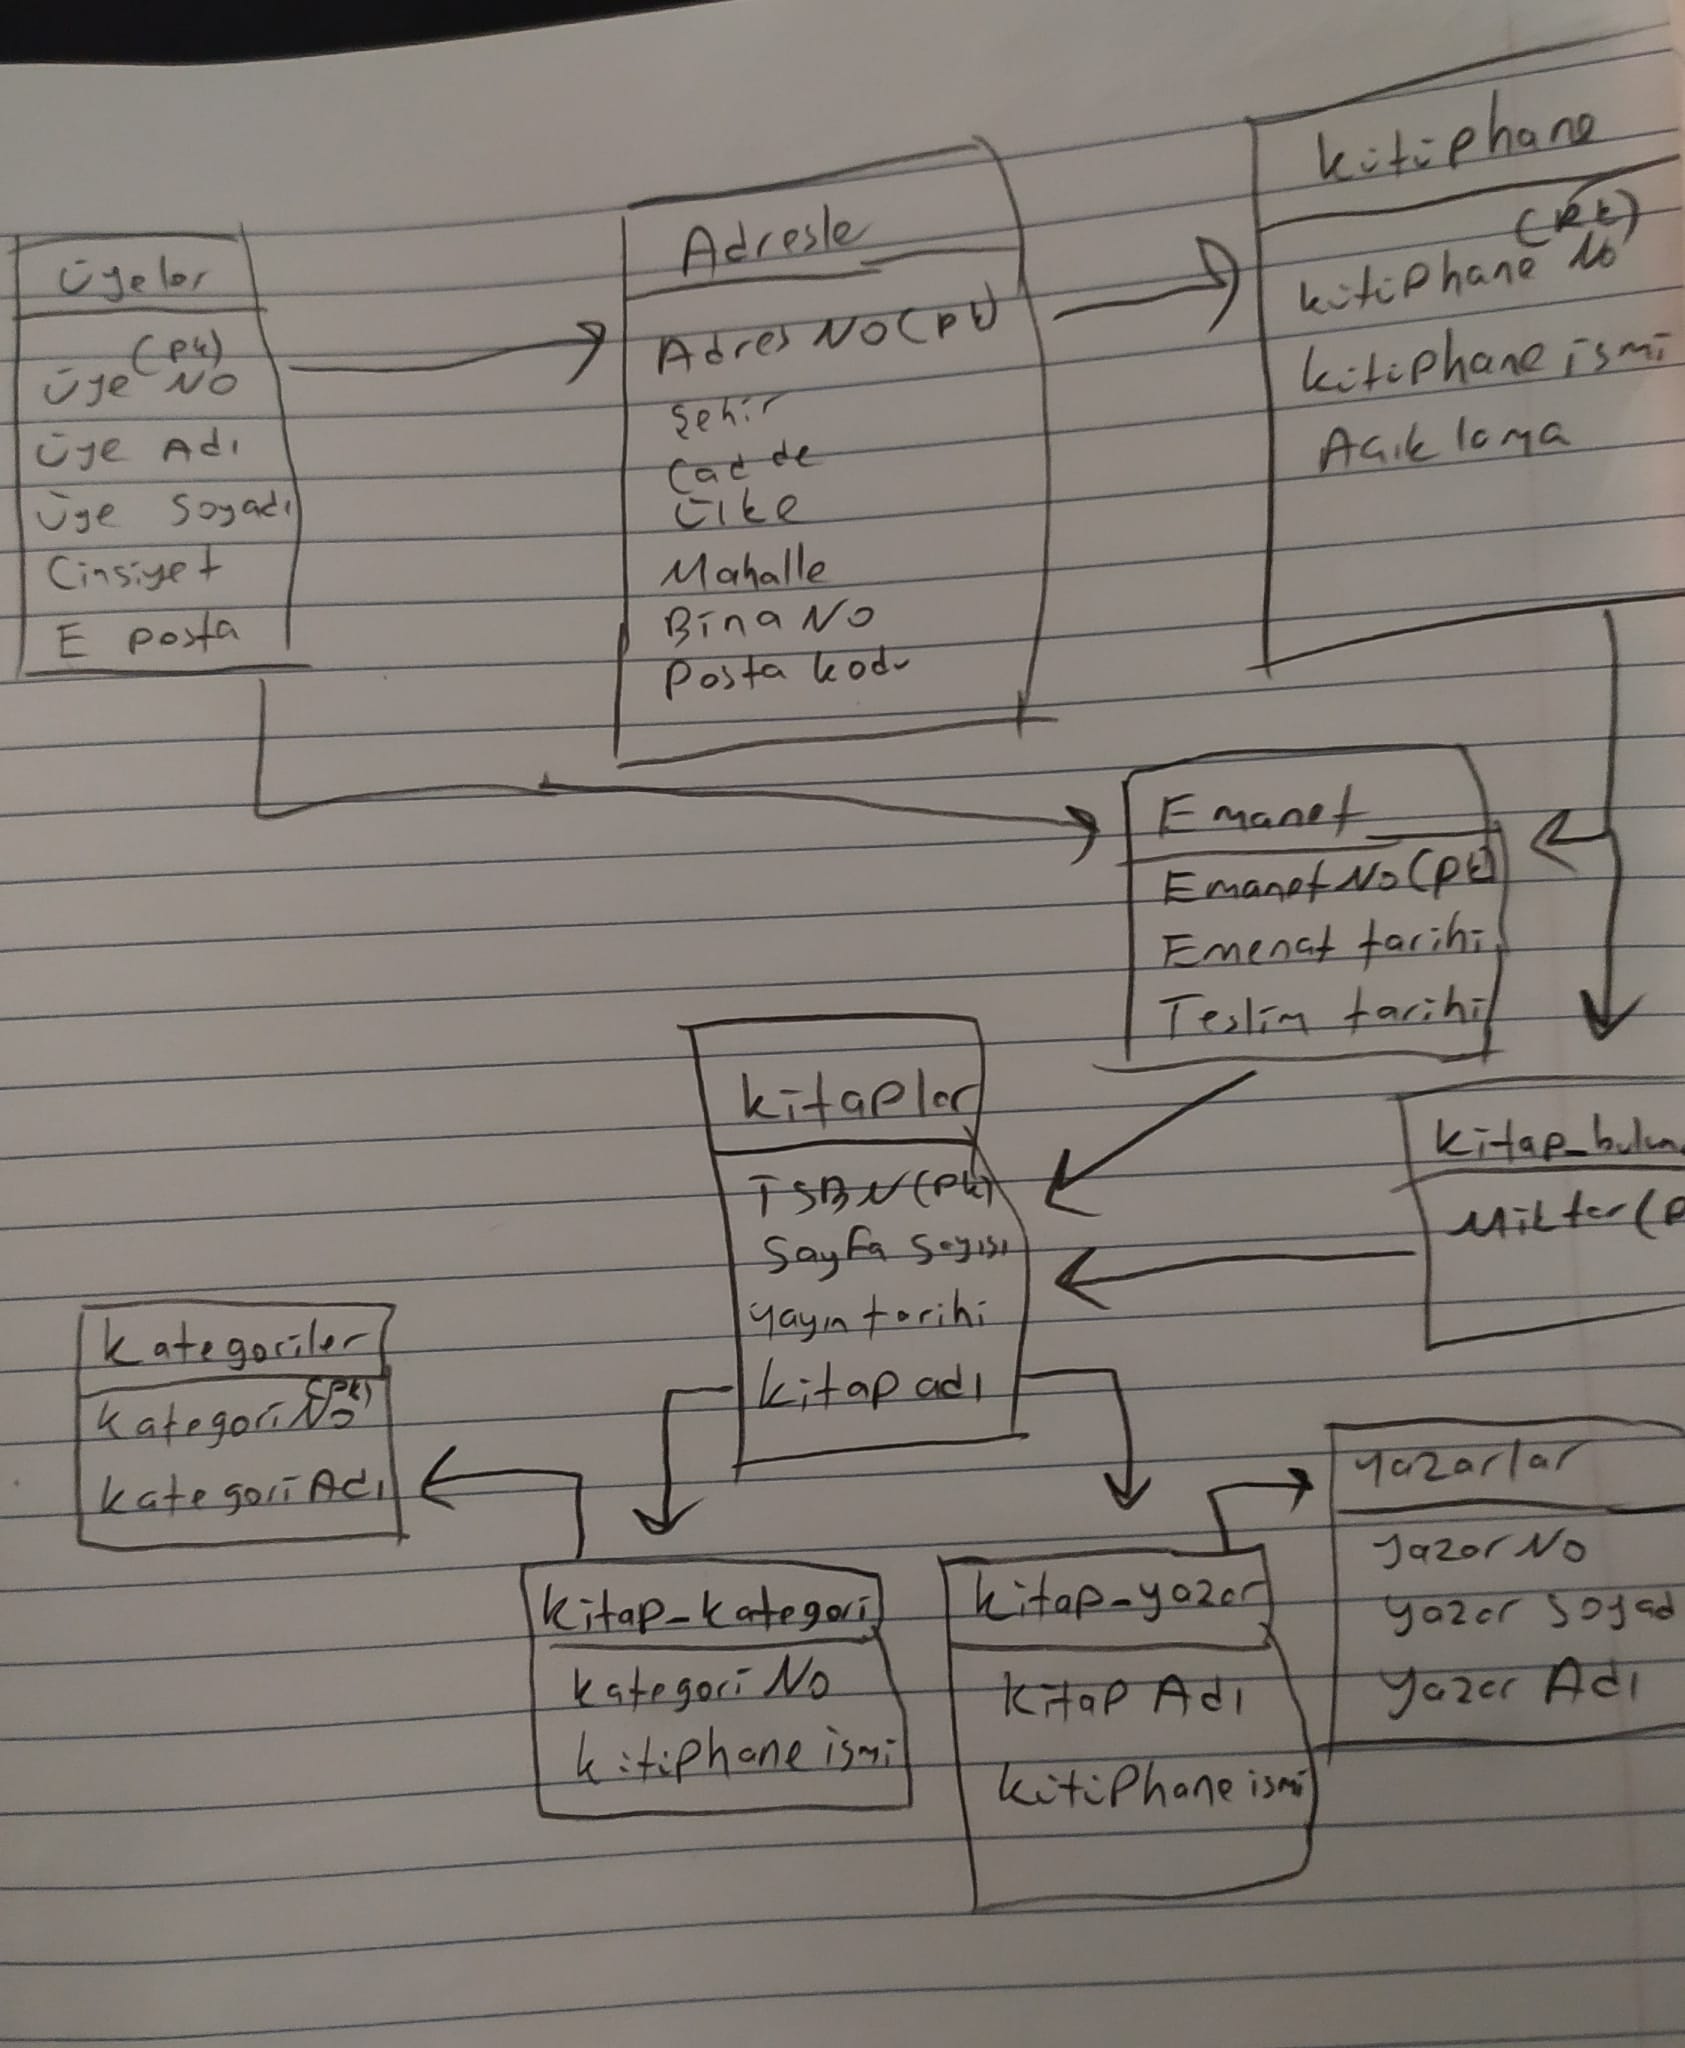 Üyeler
(pk)
Üye NO
Üye Adı
Üye Soyadı
Cinsiyet
E posta
Adresle
Adres NO (pk)
Şehir
Cadde
Ülke
Mahalle
Bina NO
Posta kodu
kütüphane
(pk)
kütüphane No
kütüphane ismi
Açıklama
Emanet
Emanet No (pk)
Emenat tarihi
Teslim tarihi
kitaplar
ISBN (pk)
Sayfa sayısı
yayın tarihi
kitap adı
kitap_bulun
Miktar (p
kategoriler
(pk)
kategori No
kategori Adı
kitap_kategori
kategori No
kütüphane ismi
kitap_yazar
kitap Adı
kütüphane ismi
yazarlar
yazar No
yazar soyad
yazar Adı